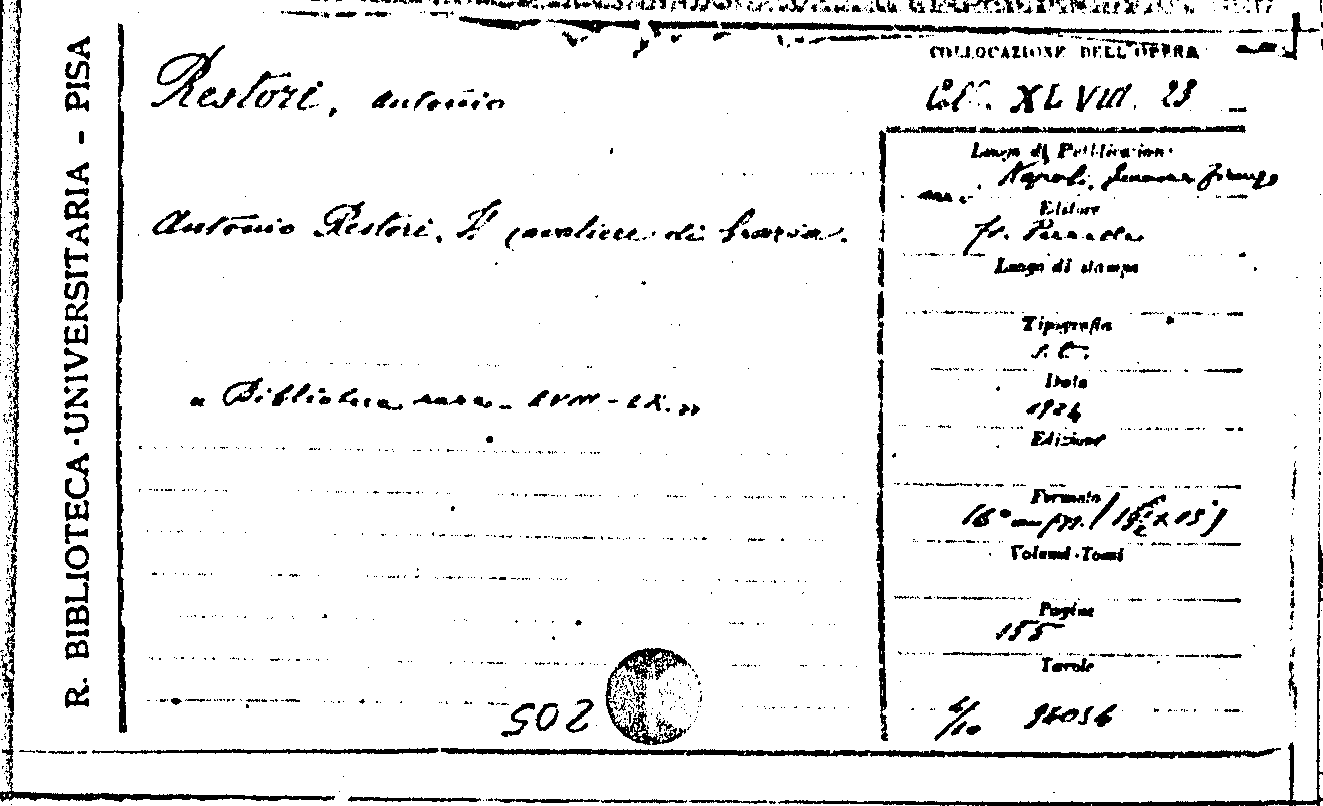 R. BIBLIOTECA UNIVERSITARIA - PISA
Restori, Antonio
Antonio Restori. Il cavaliere di Grazia.
« Biblioteca rara - LVIII - LX. »
205
COLLOCAZIONE DELL'OPERA
Coll. XLVIII. 23
Luogo di Pubblicazione
Napoli, Genova, Firenze
Editore
Fr. Perrella
Luogo di stampa
Tipografia
s. t.
Data
1924
Edizione
Formato
16°
Volumi-Tomi
Pagine
155
Tavole